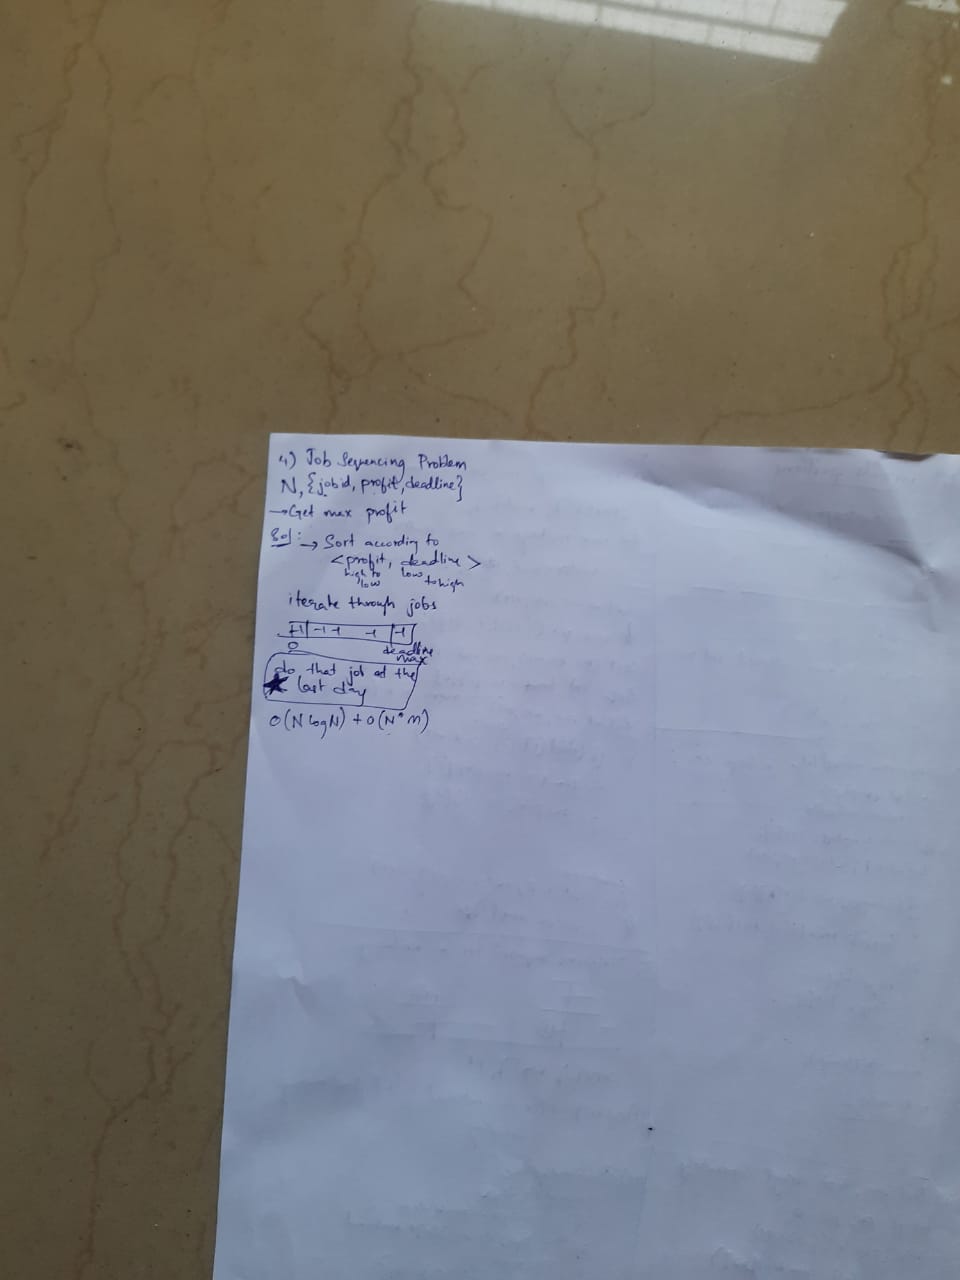 4) Job Sequencing Problem
N, {jobid, profit, deadline}
→ Get max profit
Sol: → Sort according to
<profit, deadline>
high to low low to high
iterate through jobs
-1 -1 -1 -1 -1
0 deadline max
do that job at the
★ last day
O(N log N) + O(N*m)